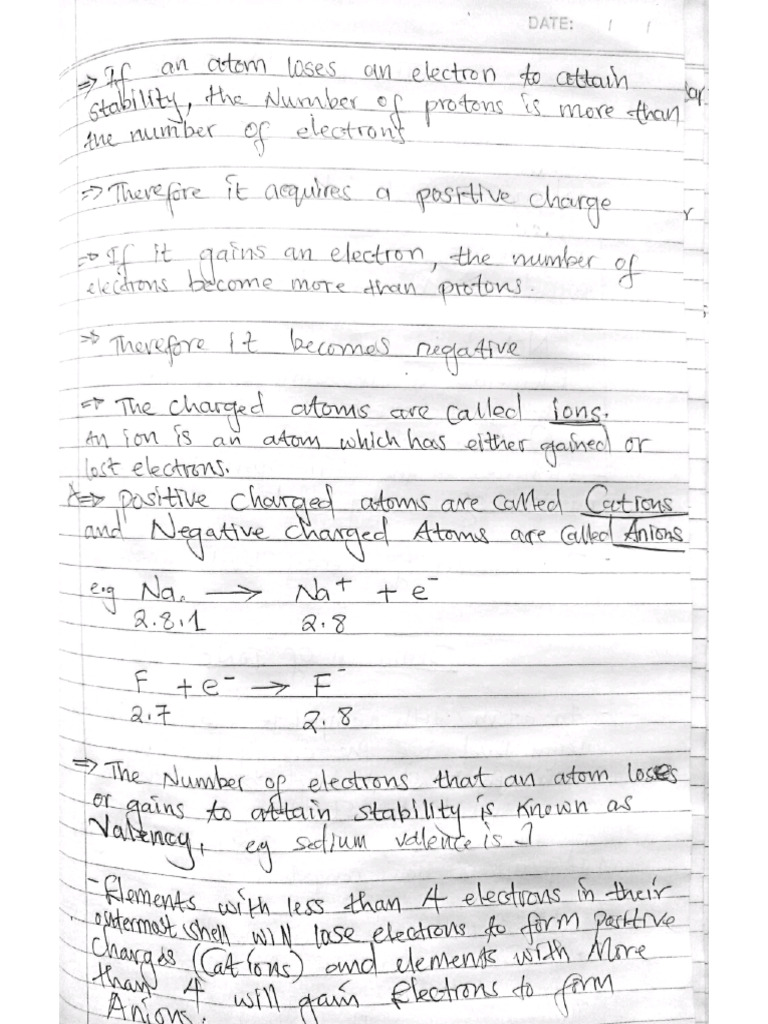 DATE: / /
⇒ If an atom loses an electron to attain
stability, the Number of protons is more than
the number of electrons
⇒ Therefore it acquires a positive charge
⇒ If it gains an electron, the number of
electrons become more than protons.
⇒ Therefore it becomes negative
⇒ The charged atoms are called ions.
An ion is an atom which has either gained or
lost electrons.
⇒ positive charged atoms are called Cations
and Negative charged Atoms are called Anions
e.g Na. → Na⁺ + e⁻
2.8.1 2.8
F + e⁻ → F⁻
2.7 2.8
⇒ The Number of electrons that an atom loses
or gains to attain stability is known as
Valency, eg sodium valence is 1
- Elements with less than 4 electrons in their
outermost shell will lose electrons to form positive
Charges (Cations) and elements with More
than 4 will gain Electrons to form
Anions.